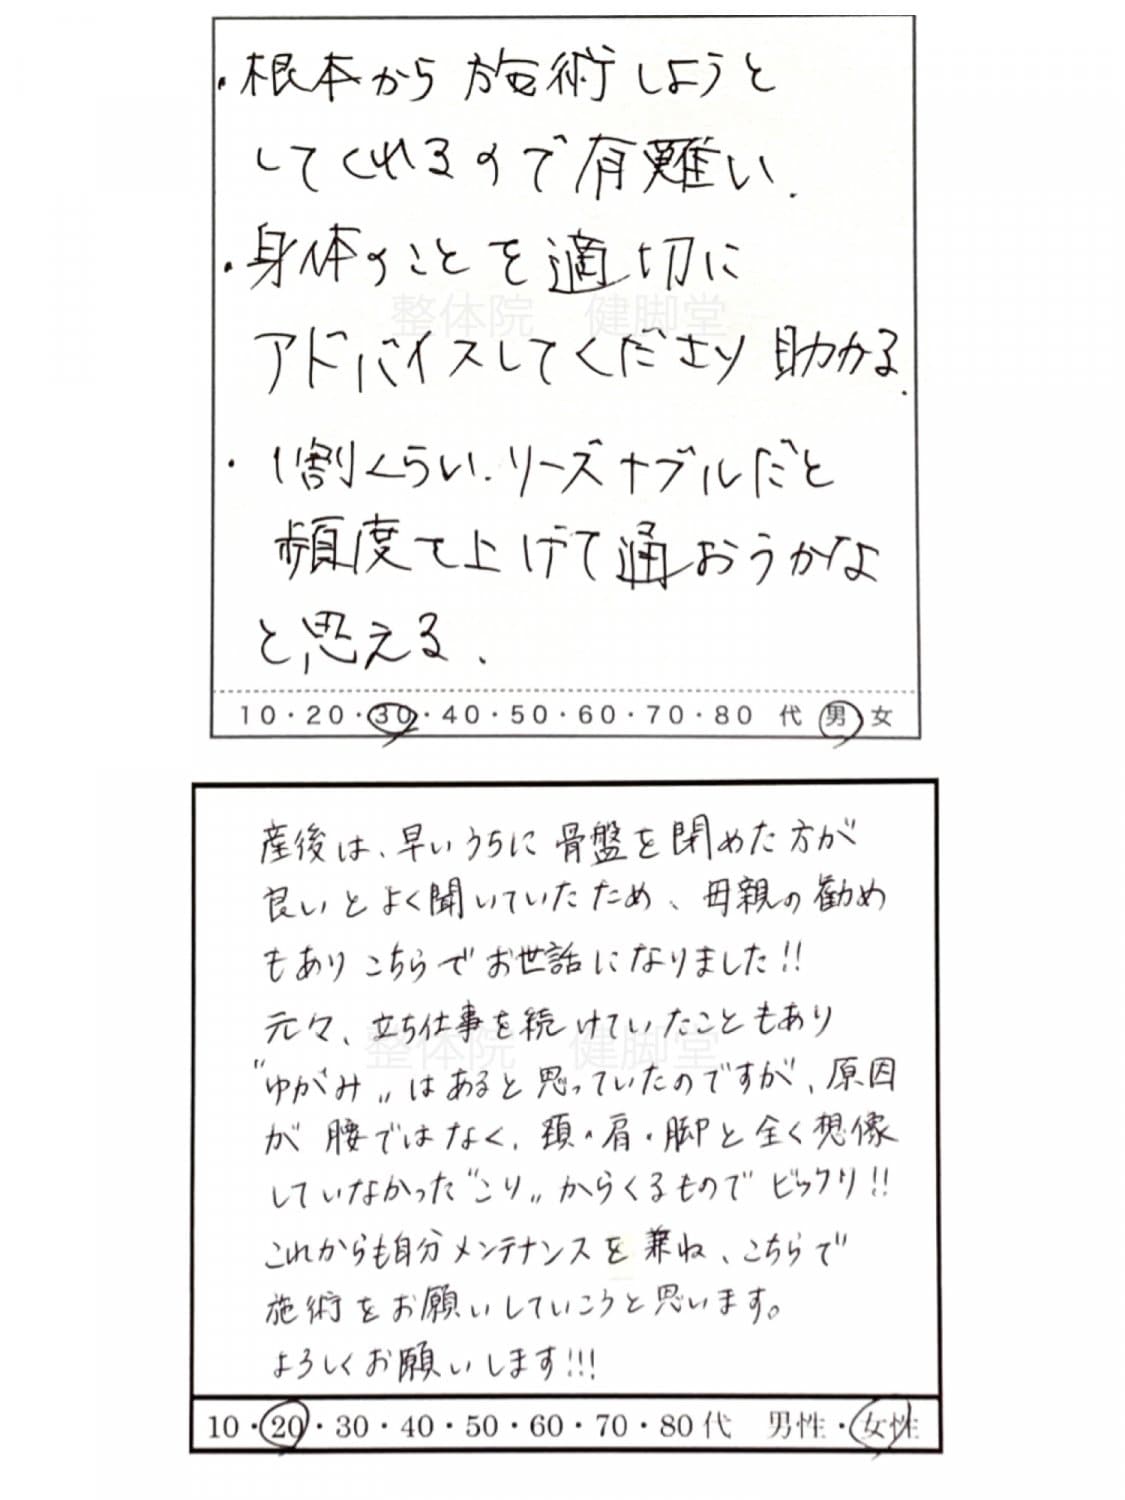 ・根本から施術しようと
してくれるので有難い.
・身体のことを適切に
整体院 健脚堂
アドバイスしてくださり助かる.
・1割くらい.リーズナブルだと
頻度を上げて通おうかな
と思える.
10・20・30・40・50・60・70・80 代 男 女
産後は、早いうちに骨盤を閉めた方が
良いとよく聞いていたため、母親の勧め
もありこちらでお世話になりました!!
元々、立ち仕事を続けていたこともあり
整体院 健脚堂
"ゆがみ〟はあると思っていたのですが、原因
が腰ではなく、頚・肩・脚と全く想像
していなかった"こり〟からくるものでビックリ!!
これからも自分メンテナンスを兼ね、こちらで
施術をお願いしていこうと思います。
よろしくお願いします!!!
10・20・30・40・50・60・70・80代 男性・女性